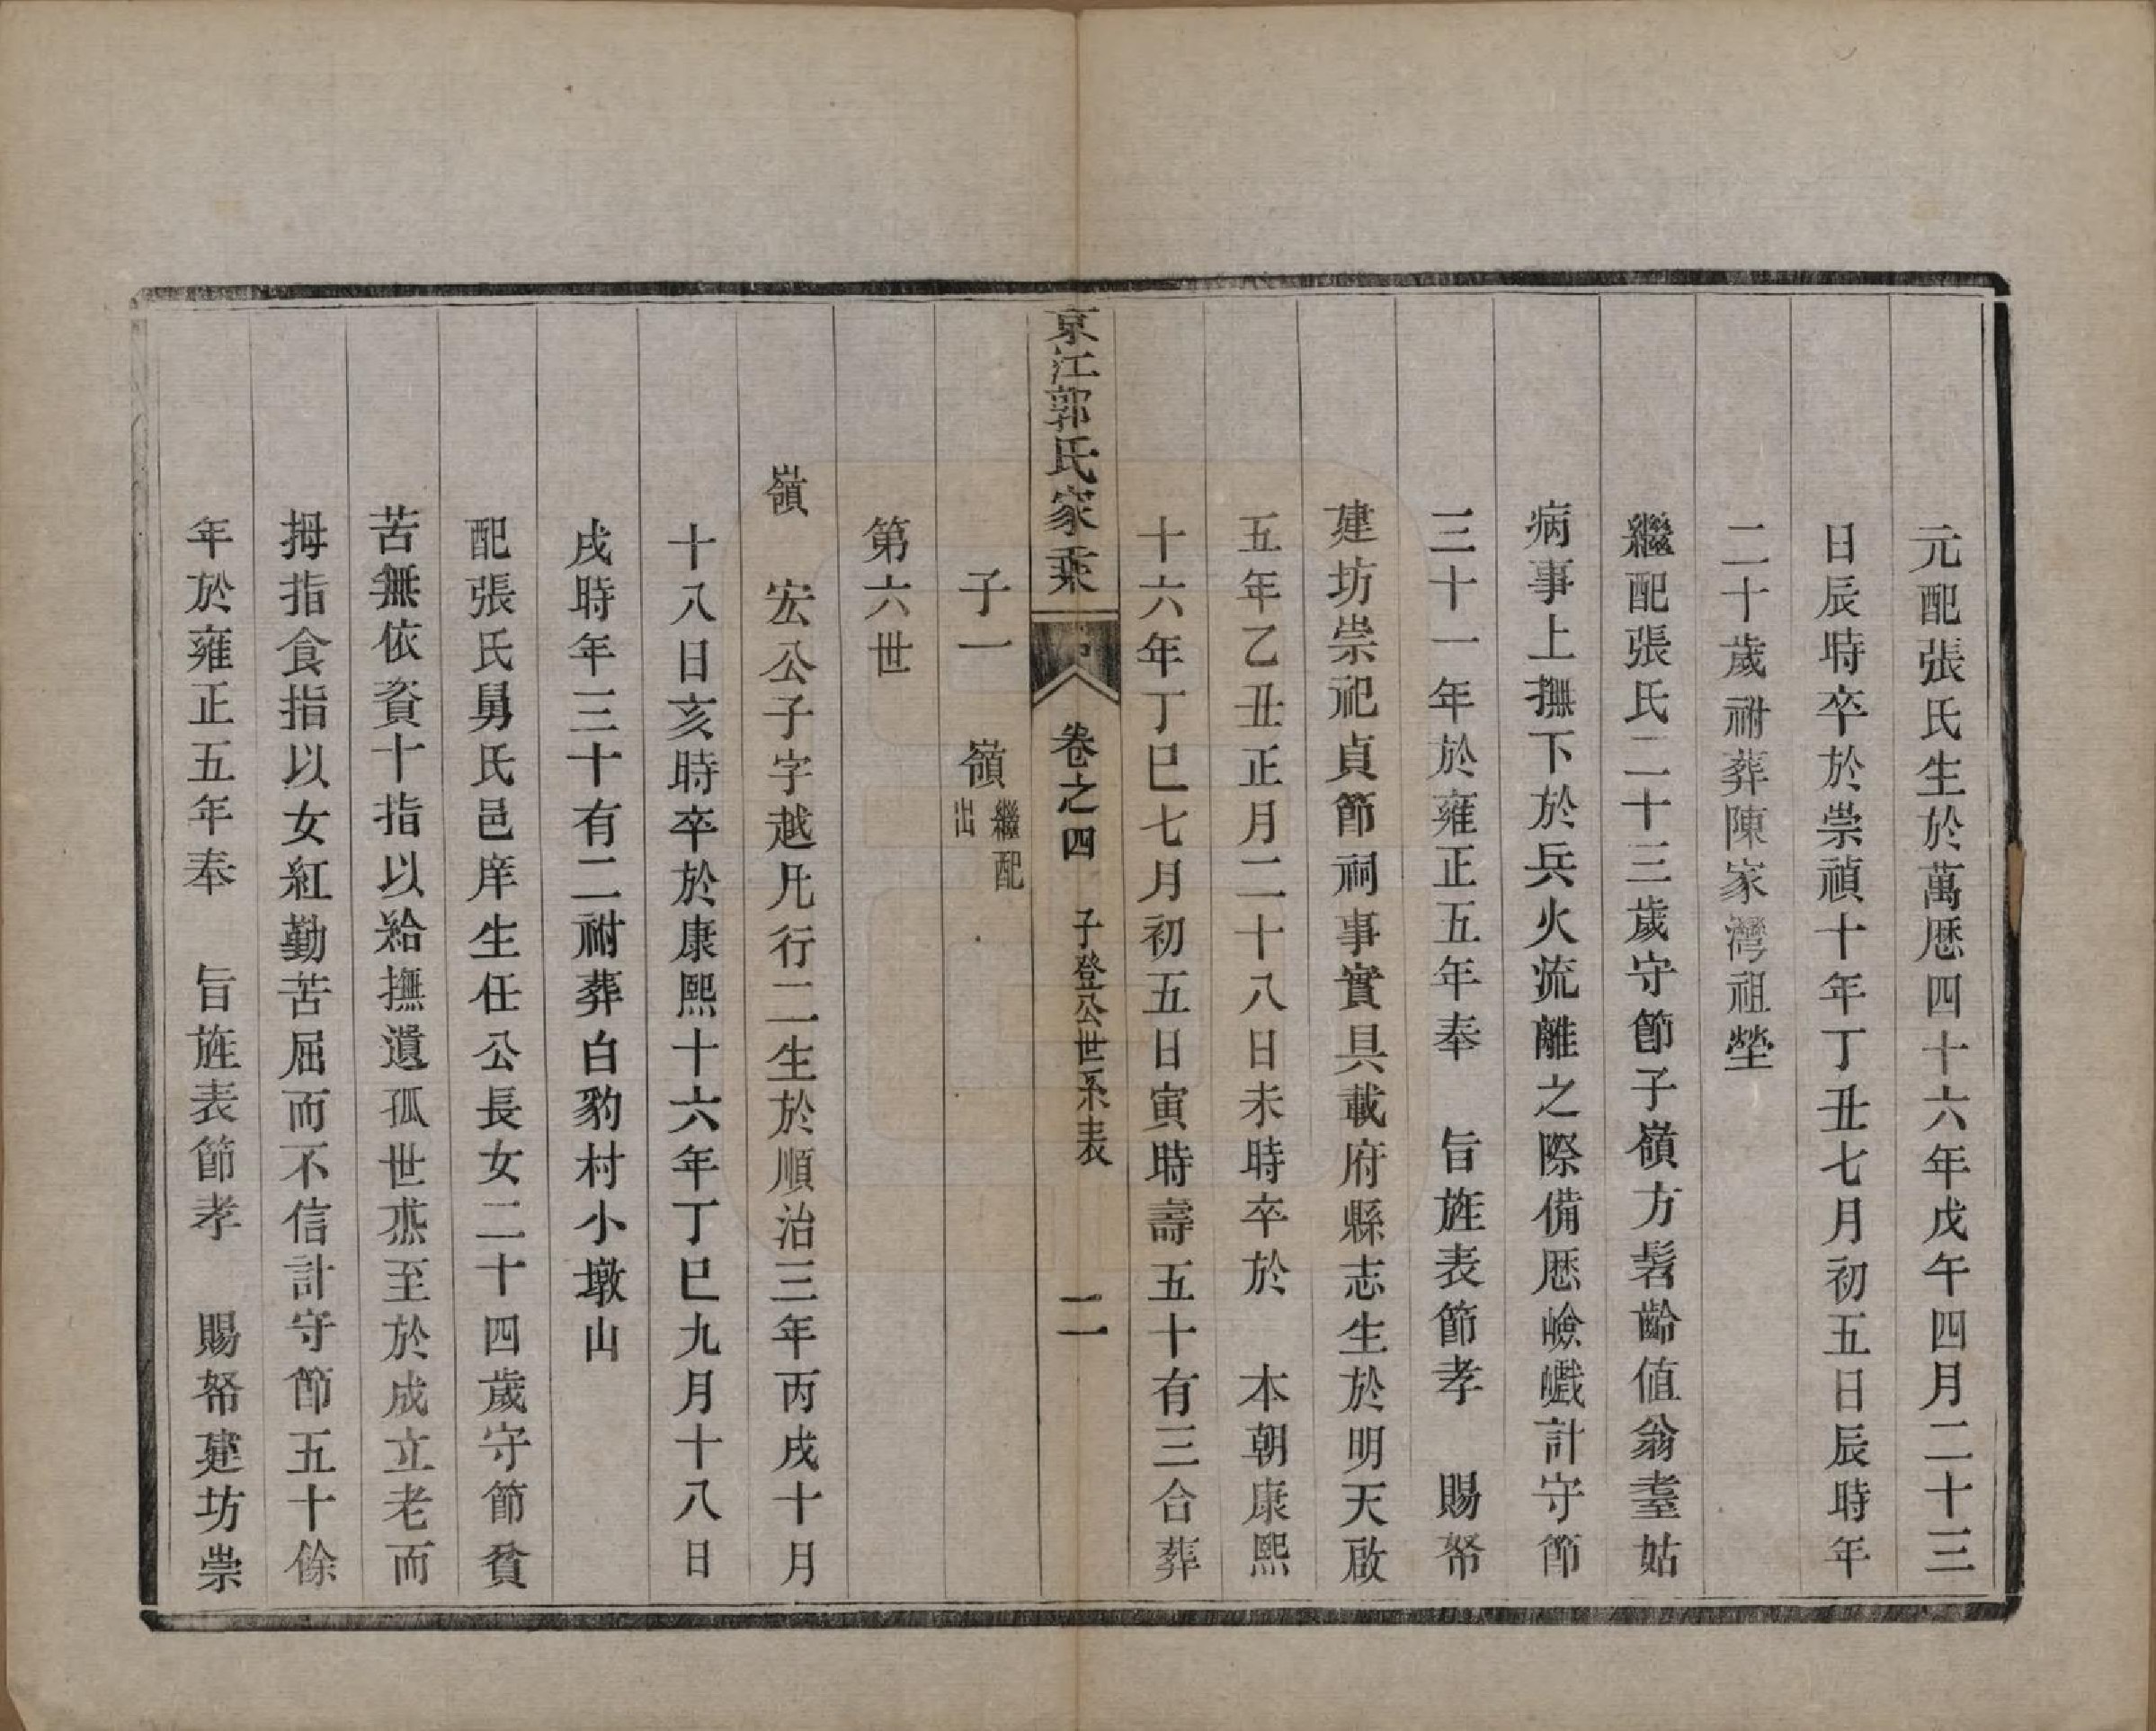 元配張氏生於萬厯四十六年戊午四月二十三
日辰時卒於崇禎十年丁丑七月初五日辰時年
二十歲祔葬陳家灣祖塋
繼配張氏二十三歲守節子嶺方髫齡值翁耋姑
病事上撫下於兵火流離之際備厯嶮巇計守節
三十一年於雍正五年奉　旨旌表節孝　賜帑
建坊崇祀貞節祠事實具載府縣志生於明天啟
五年乙丑正月二十八日未時卒於　本朝康熙
十六年丁巳七月初五日寅時壽五十有三合葬
京江郭氏家乘　卷之四　子登公世系表　二
子一　嶺繼配出
第六世
嶺　宏公子字越凡行二生於順治三年丙戌十月
十八日亥時卒於康熙十六年丁巳九月十八日
戌時年三十有二祔葬白豹村小墩山
配張氏舅氏邑庠生任公長女二十四歲守節貧
苦無依資十指以給撫遺孤世燾至於成立老而
拇指食指以女紅勤苦屈而不信計守節五十餘
年於雍正五年奉　旨旌表節孝　賜帑建坊崇